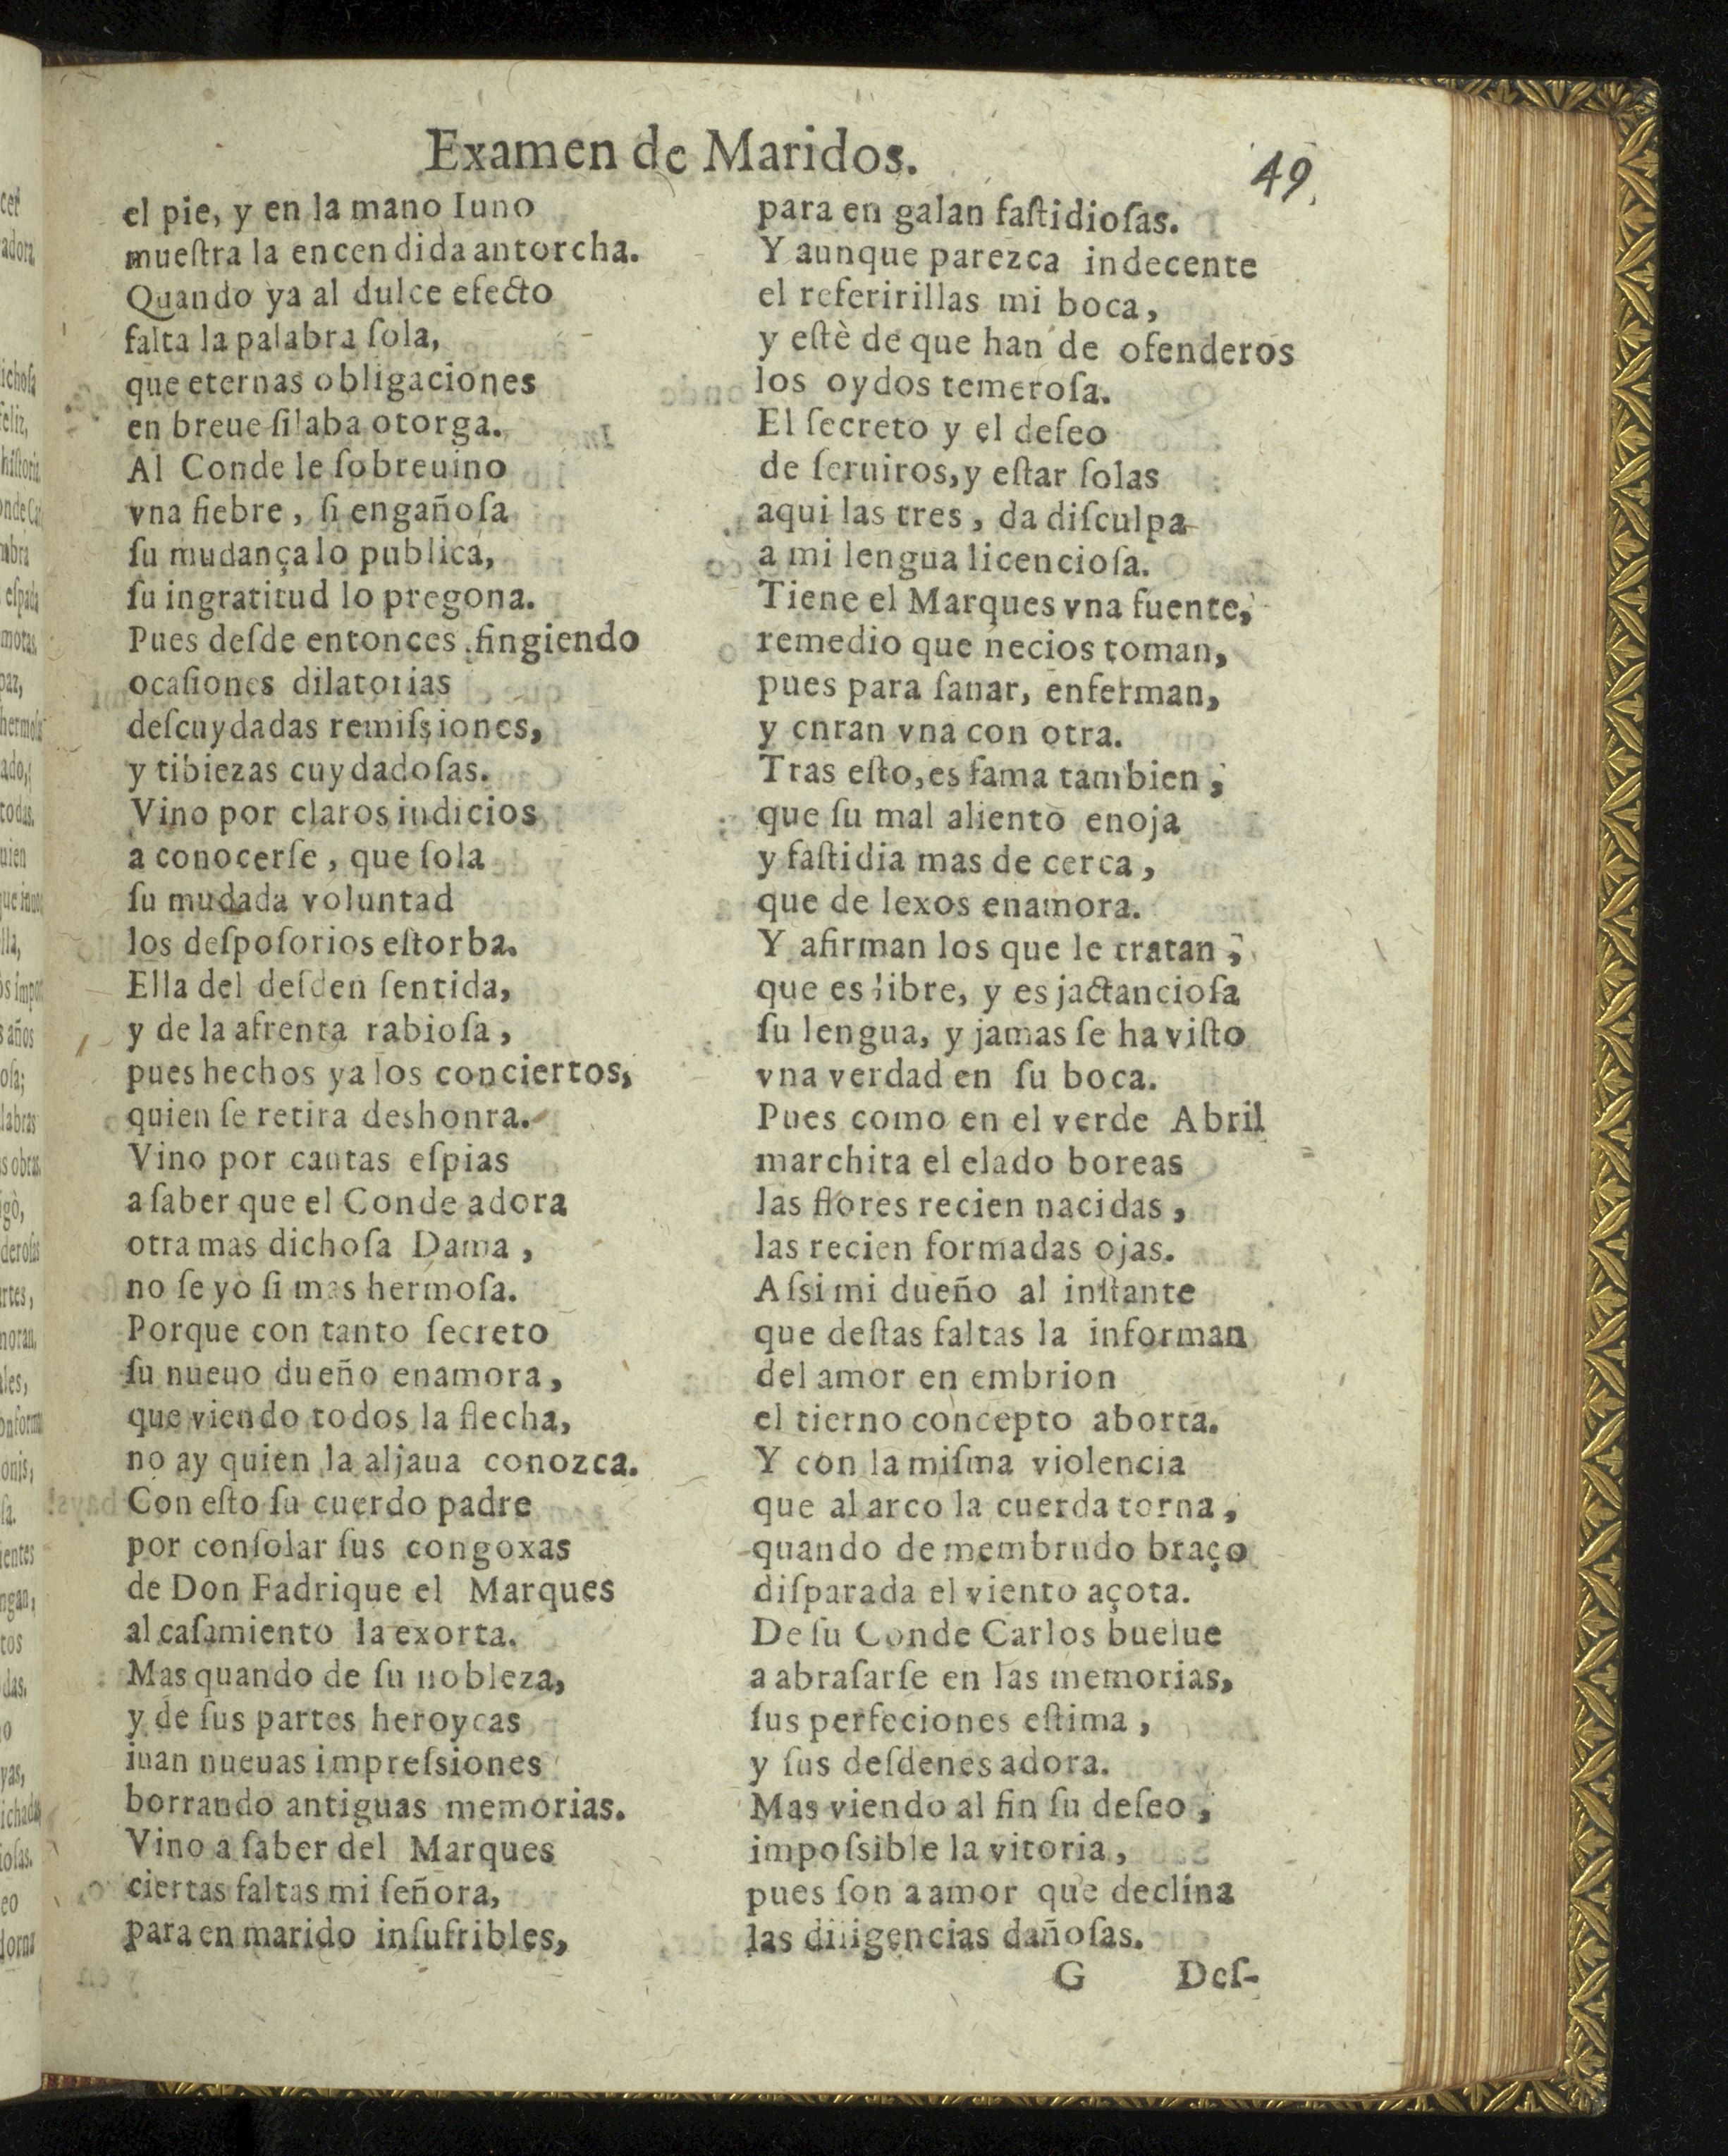 Examen de Maridos.
49
el pie, y en la mano Iuno
mueſtra la encendida antorcha.
Quando ya al dulce efecto
falta la palabra ſola,
que eternas obligaciones
en breue ſilaba otorga.
Al Conde le ſobreuino
vna fiebre, ſi engañoſa
ſu mudança lo publica,
ſu ingratitud lo pregona.
Pues deſde entonces fingiendo
ocaſiones dilatorias
deſcuydadas remiſsiones,
y tibiezas cuydadoſas.
Vino por claros indicios
a conocerſe, que ſola
ſu mudada voluntad
los deſpoſorios eſtorba.
Ella del deſden ſentida,
y de la afrenta rabioſa,
pues hechos ya los conciertos,
quien ſe retira deshonra.
Vino por cautas eſpias
a ſaber que el Conde adora
otra mas dichoſa Dama,
no ſe yo ſi mas hermoſa.
Porque con tanto ſecreto
ſu nueuo dueño enamora,
que viendo todos la flecha,
no ay quien la aljaua conozca.
Con eſto ſu cuerdo padre
por conſolar ſus congoxas
de Don Fadrique el Marques
al caſamiento la exorta.
Mas quando de ſu nobleza,
y de ſus partes heroycas
iuan nueuas impreſsiones
borrando antiguas memorias.
Vino a ſaber del Marques
ciertas faltas mi ſeñora,
para en marido inſufribles,
para en galan faſtidioſas.
Y aunque parezca indecente
el referirillas mi boca,
y eſtè de que han de ofenderos
los oydos temeroſa.
El ſecreto y el deſeo
de ſeruiros, y eſtar ſolas
aqui las tres, da diſculpa
a mi lengua licencioſa.
Tiene el Marques vna fuente,
remedio que necios toman,
pues para ſanar, enferman,
y cnran vna con otra.
Tras eſto, es fama tambien,
que ſu mal aliento enoja
y faſtidia mas de cerca,
que de lexos enamora.
Y afirman los que le tratan,
que es libre, y es jactancioſa
ſu lengua, y jamas ſe ha viſto
vna verdad en ſu boca.
Pues como en el verde Abril
marchita el elado boreas
las flores recien nacidas,
las recien formadas ojas.
Aſsi mi dueño al inſtante
que deſtas faltas la informan
del amor en embrion
el tierno concepto aborta.
Y con la miſma violencia
que al arco la cuerda torna,
quando de membrudo braço
diſparada el viento açota.
De ſu Conde Carlos buelue
a abraſarſe en las memorias,
ſus perfeciones eſtima,
y ſus deſdenes adora.
Mas viendo al fin ſu deſeo,
impoſsible la vitoria,
pues ſon a amor que declina
las diligencias dañoſas.
G Deſ-